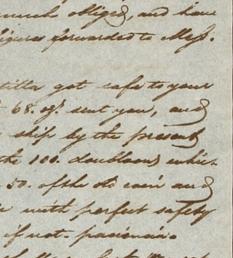 much obliged, and have
figures forwarded to Mess.
got safe to your
68. sent you, and
ship by the present
the 100. doubloons which
50. of the old coin and
with perfect safety
if not